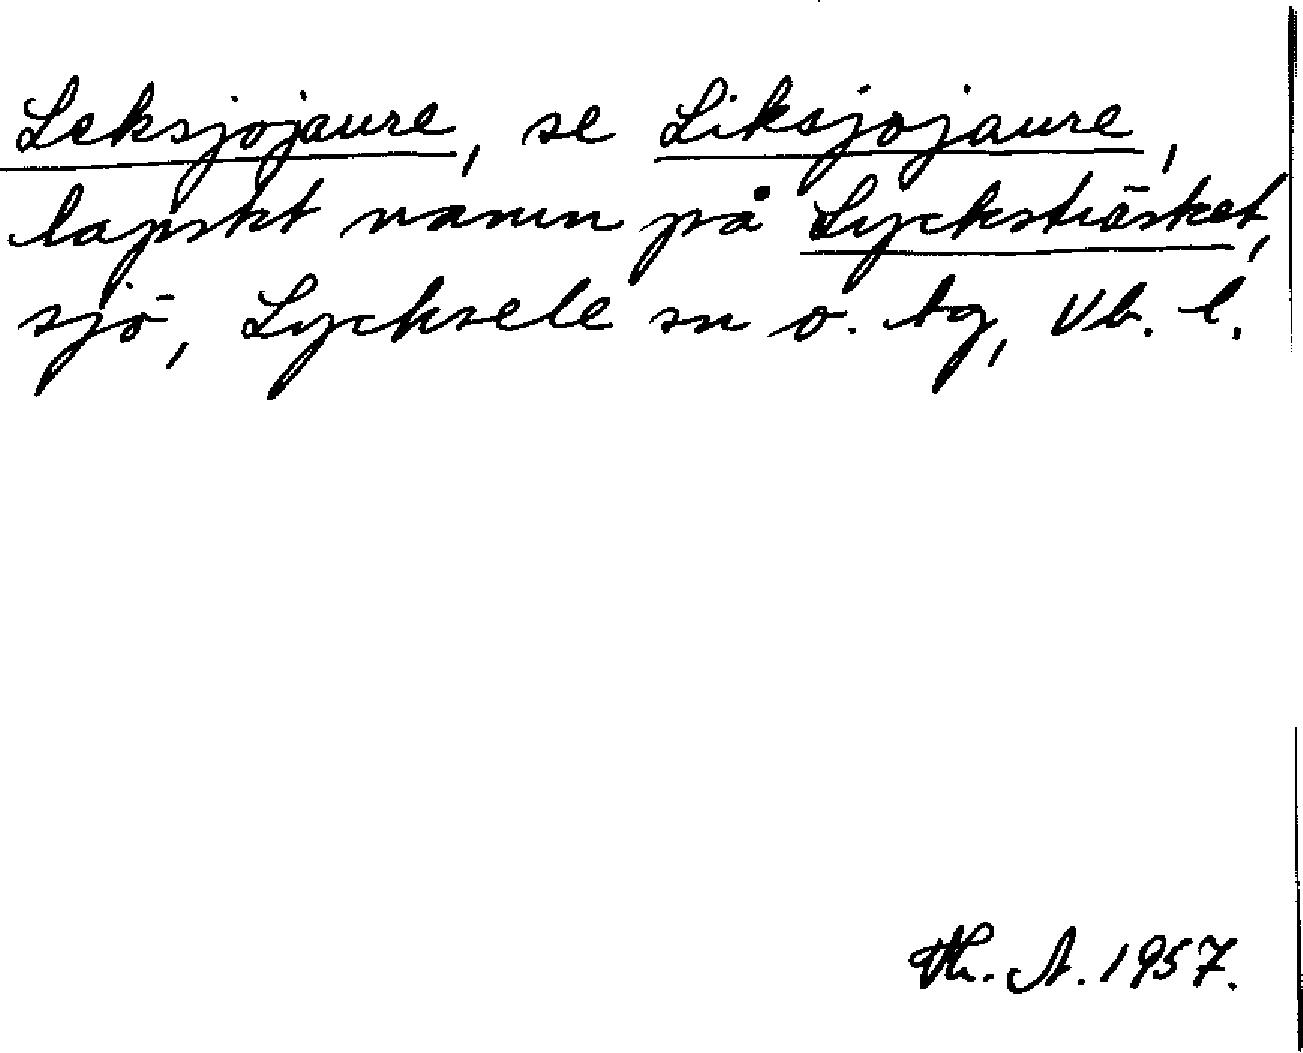 Leksjojaure, se Liksjojaure,
lapskt namn på Lyckströsket,
sjö, Lycksele sn o. tg, Vb. l.
Th. A. 1957.